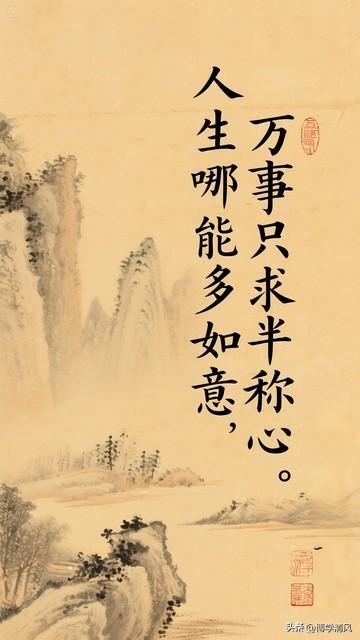 人生哪能多如意，
万事只求半称心。
头条 @博学清风